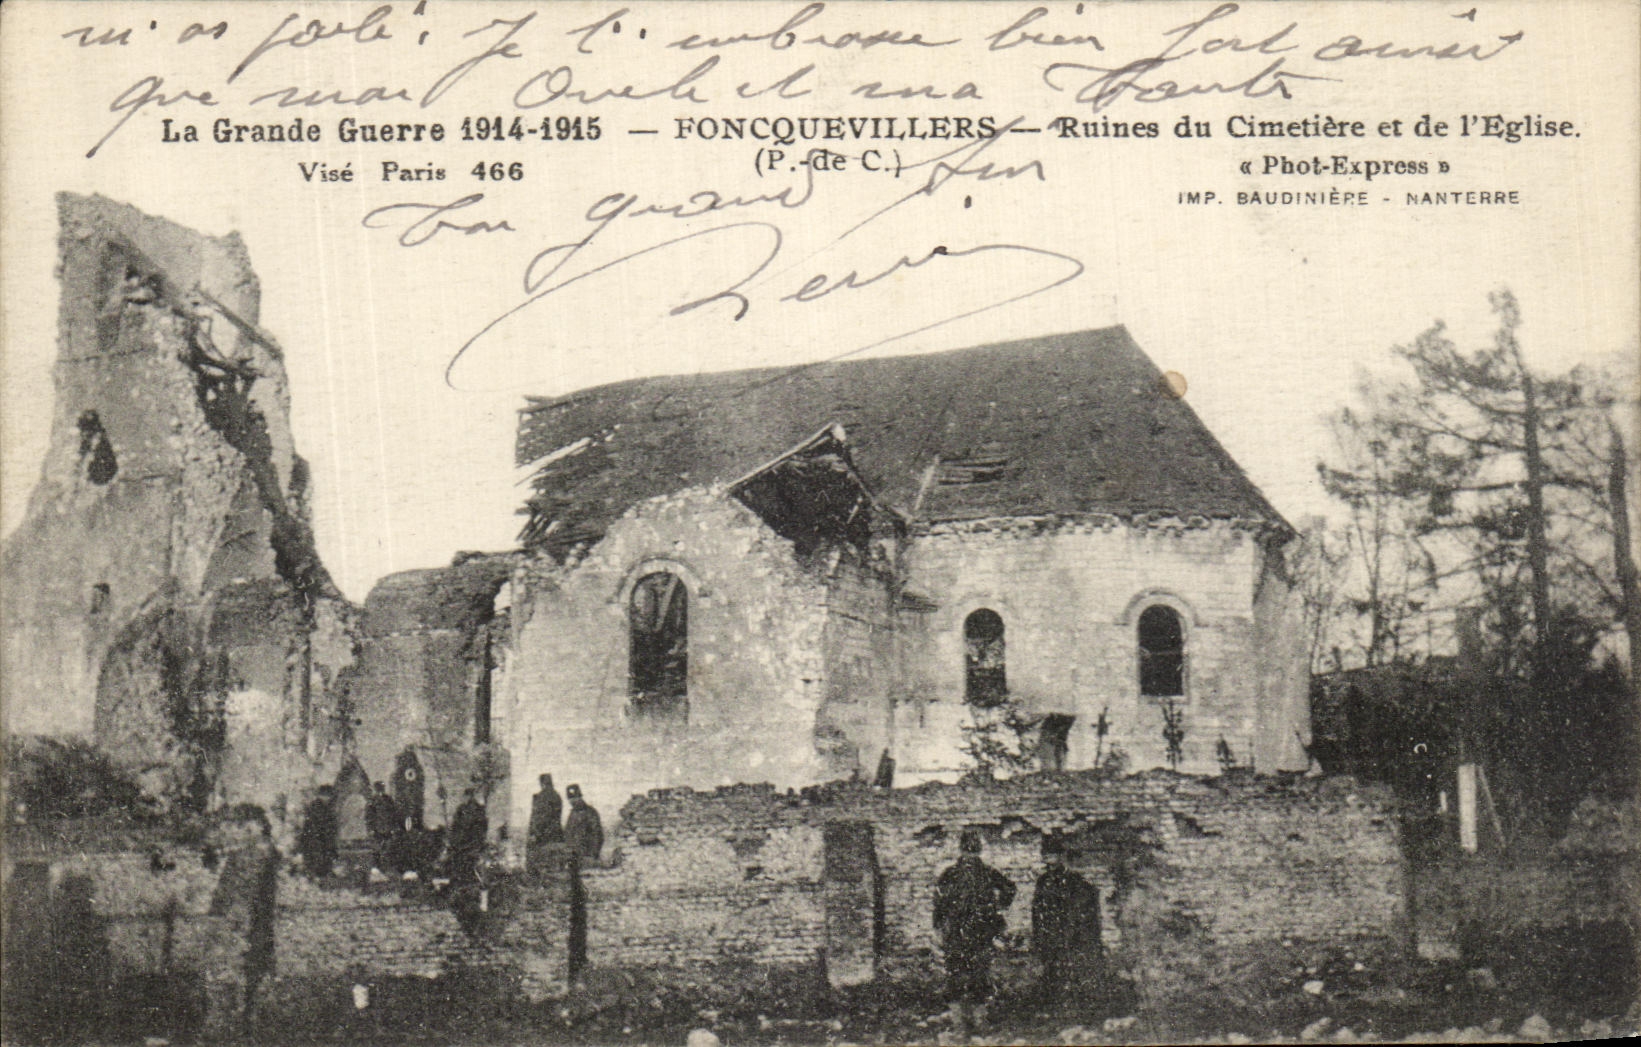 m'as parlé. Je t'embrasse bien fort ainsi
que mon Oncle et ma Tante
La Grande Guerre 1914-1915 — FONCQUEVILLERS — Ruines du Cimetière et de l'Eglise.
(P.-de C.)
Visé Paris 466
« Phot-Express »
IMP. BAUDINIÈRE - NANTERRE
Ton grand